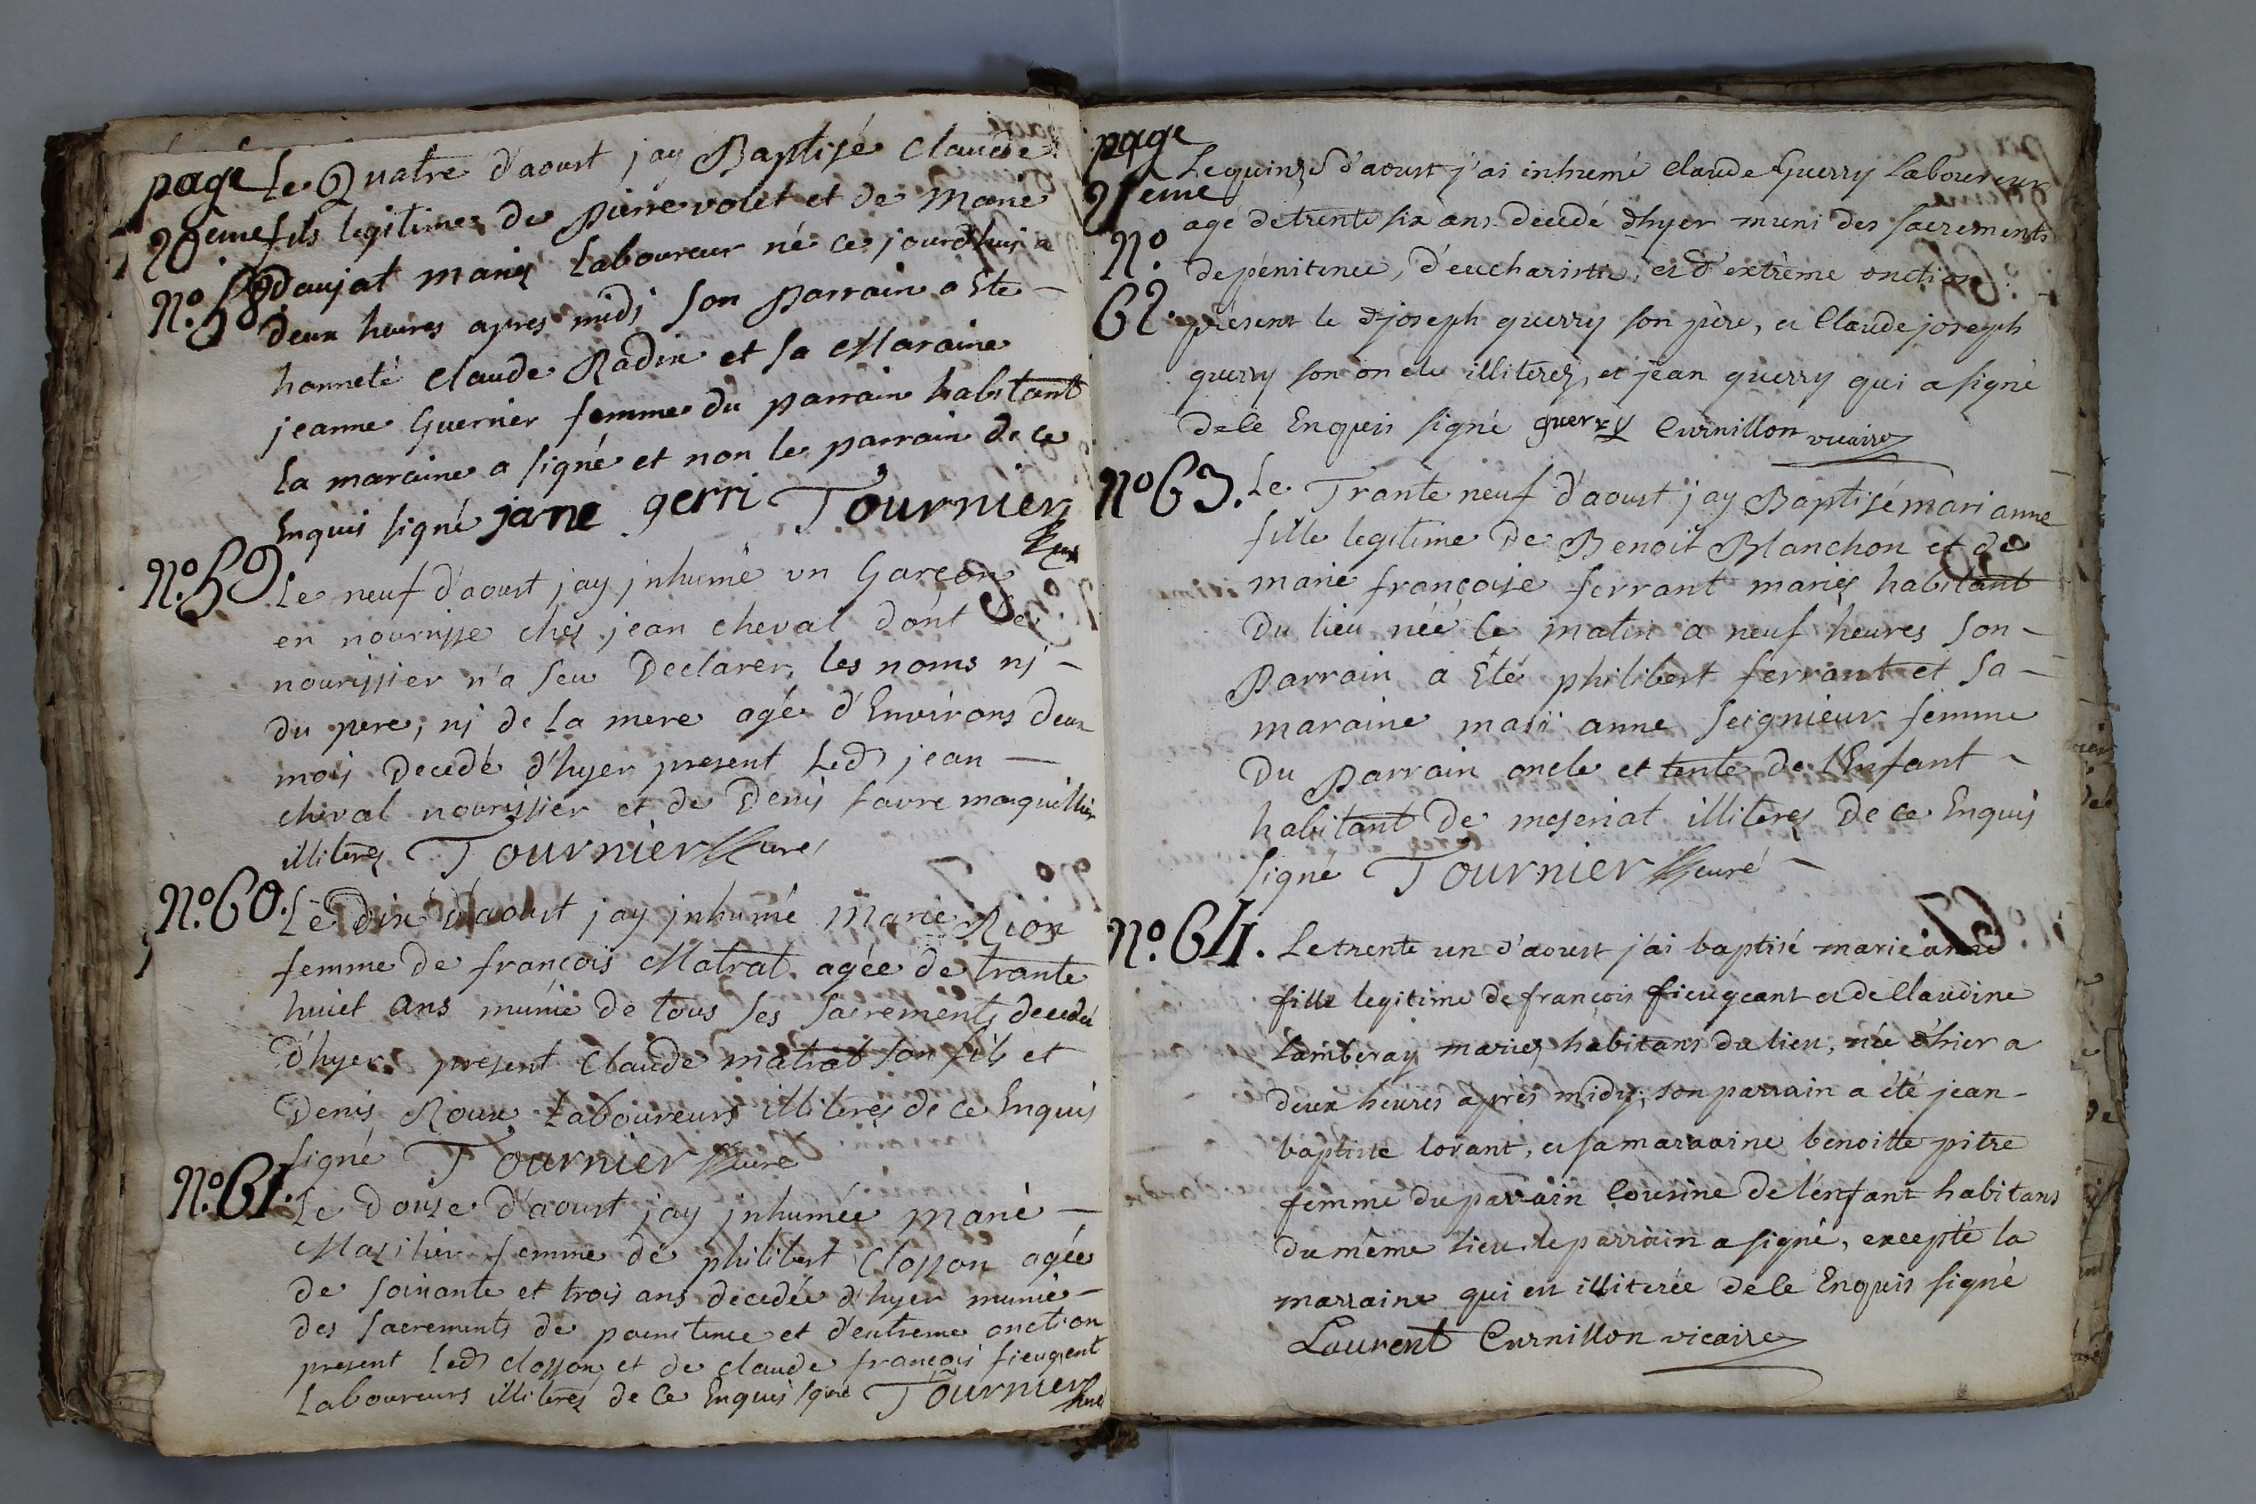 page
20eme
No. 58
Le Quatre d'aoust jay Baptisé Claude
fils legitime de pierre volet et de Marie
Daujat mariez Laboureur né ce jourdhuj a
deux heures apres midj son parrain a Ete
honneté Claude Radix et sa Maraine
jeanne Guernier femme du parrain habitant
la maraine a signé et non le parrain de ce
Enquis signé jane gerri Tournier
Curé
No. 59.
Le neuf d'aoust jay jnhumé un Garçon
en nourisse ches jean cheval dont le
nourissier n'a seu Declarer les noms nj
du pere, nj de la mere agé d'Environs deux
mois Decedé d'hyer present Led jean
cheval nourissier et de Denis favre marguillier
illiterez Tournier Curé
No. 60.
Le dix d'aoust jay jnhumé Marie Rion
femme de françois Matrat agée de trante
huict ans munie de tous ses sacrements decedée
D'hyer present Claude matrat son fils et
Denis Roux Laboureurs illiterez de ce Enquis
signé Tournier Curé
No. 61.
Le Douze d'aoust jay jnhumée Marie
Mazilier femme de philibert Closson agée
de soixante et trois ans decedée d'hyer munie
des sacrements de penitence et d'extreme onction
present Led closson et de claude françois fieugent
Laboureurs illiterez de ce Enquis signé Tournier
Curé
page
21eme
No
62.
Le quinze d'aoust j'ai inhumé claude Guerry Laboureur
agé de trente six ans decedé d'hyer muni des sacrements
de pénitence, d'eucharistie, et d'extrème onction
présent le d joseph guerry son père, et Claude joseph
guerry son oncle illiterez, et jean guerry qui a signé
de le Enquis signé guerry Curnillon vicaire
No 63.
Le Trante neuf d'aoust jay Baptisé mari anne
fille legitime De Benoit Blanchon et de
marie françoise ferrant mariez habitant
Du lieu née le matin a neuf heures son
Parrain a Eté philibert ferrant et sa
maraine mari anne seignieur femme
Du Parrain oncle et tente de l'Enfant
habitant de meseriat illiterez De ce Enquis
signé Tournier Curé
No. 64.
Le trente un d'aoust j'ai baptisé marie anne
fille legitime de françois fieugeant et de Claudine
Lamberay mariez habitans du lieu, née d'hier a
deux heures après midy, son parrain a été jean
baptiste lorant, et sa marraine benoitte pitre
femme du parrain Cousine de l'enfant habitans
du même lieu, le parrain a signé, excepté la
marraine qui est illiterée de le Enquis signé
Laurent Curnillon vicaire